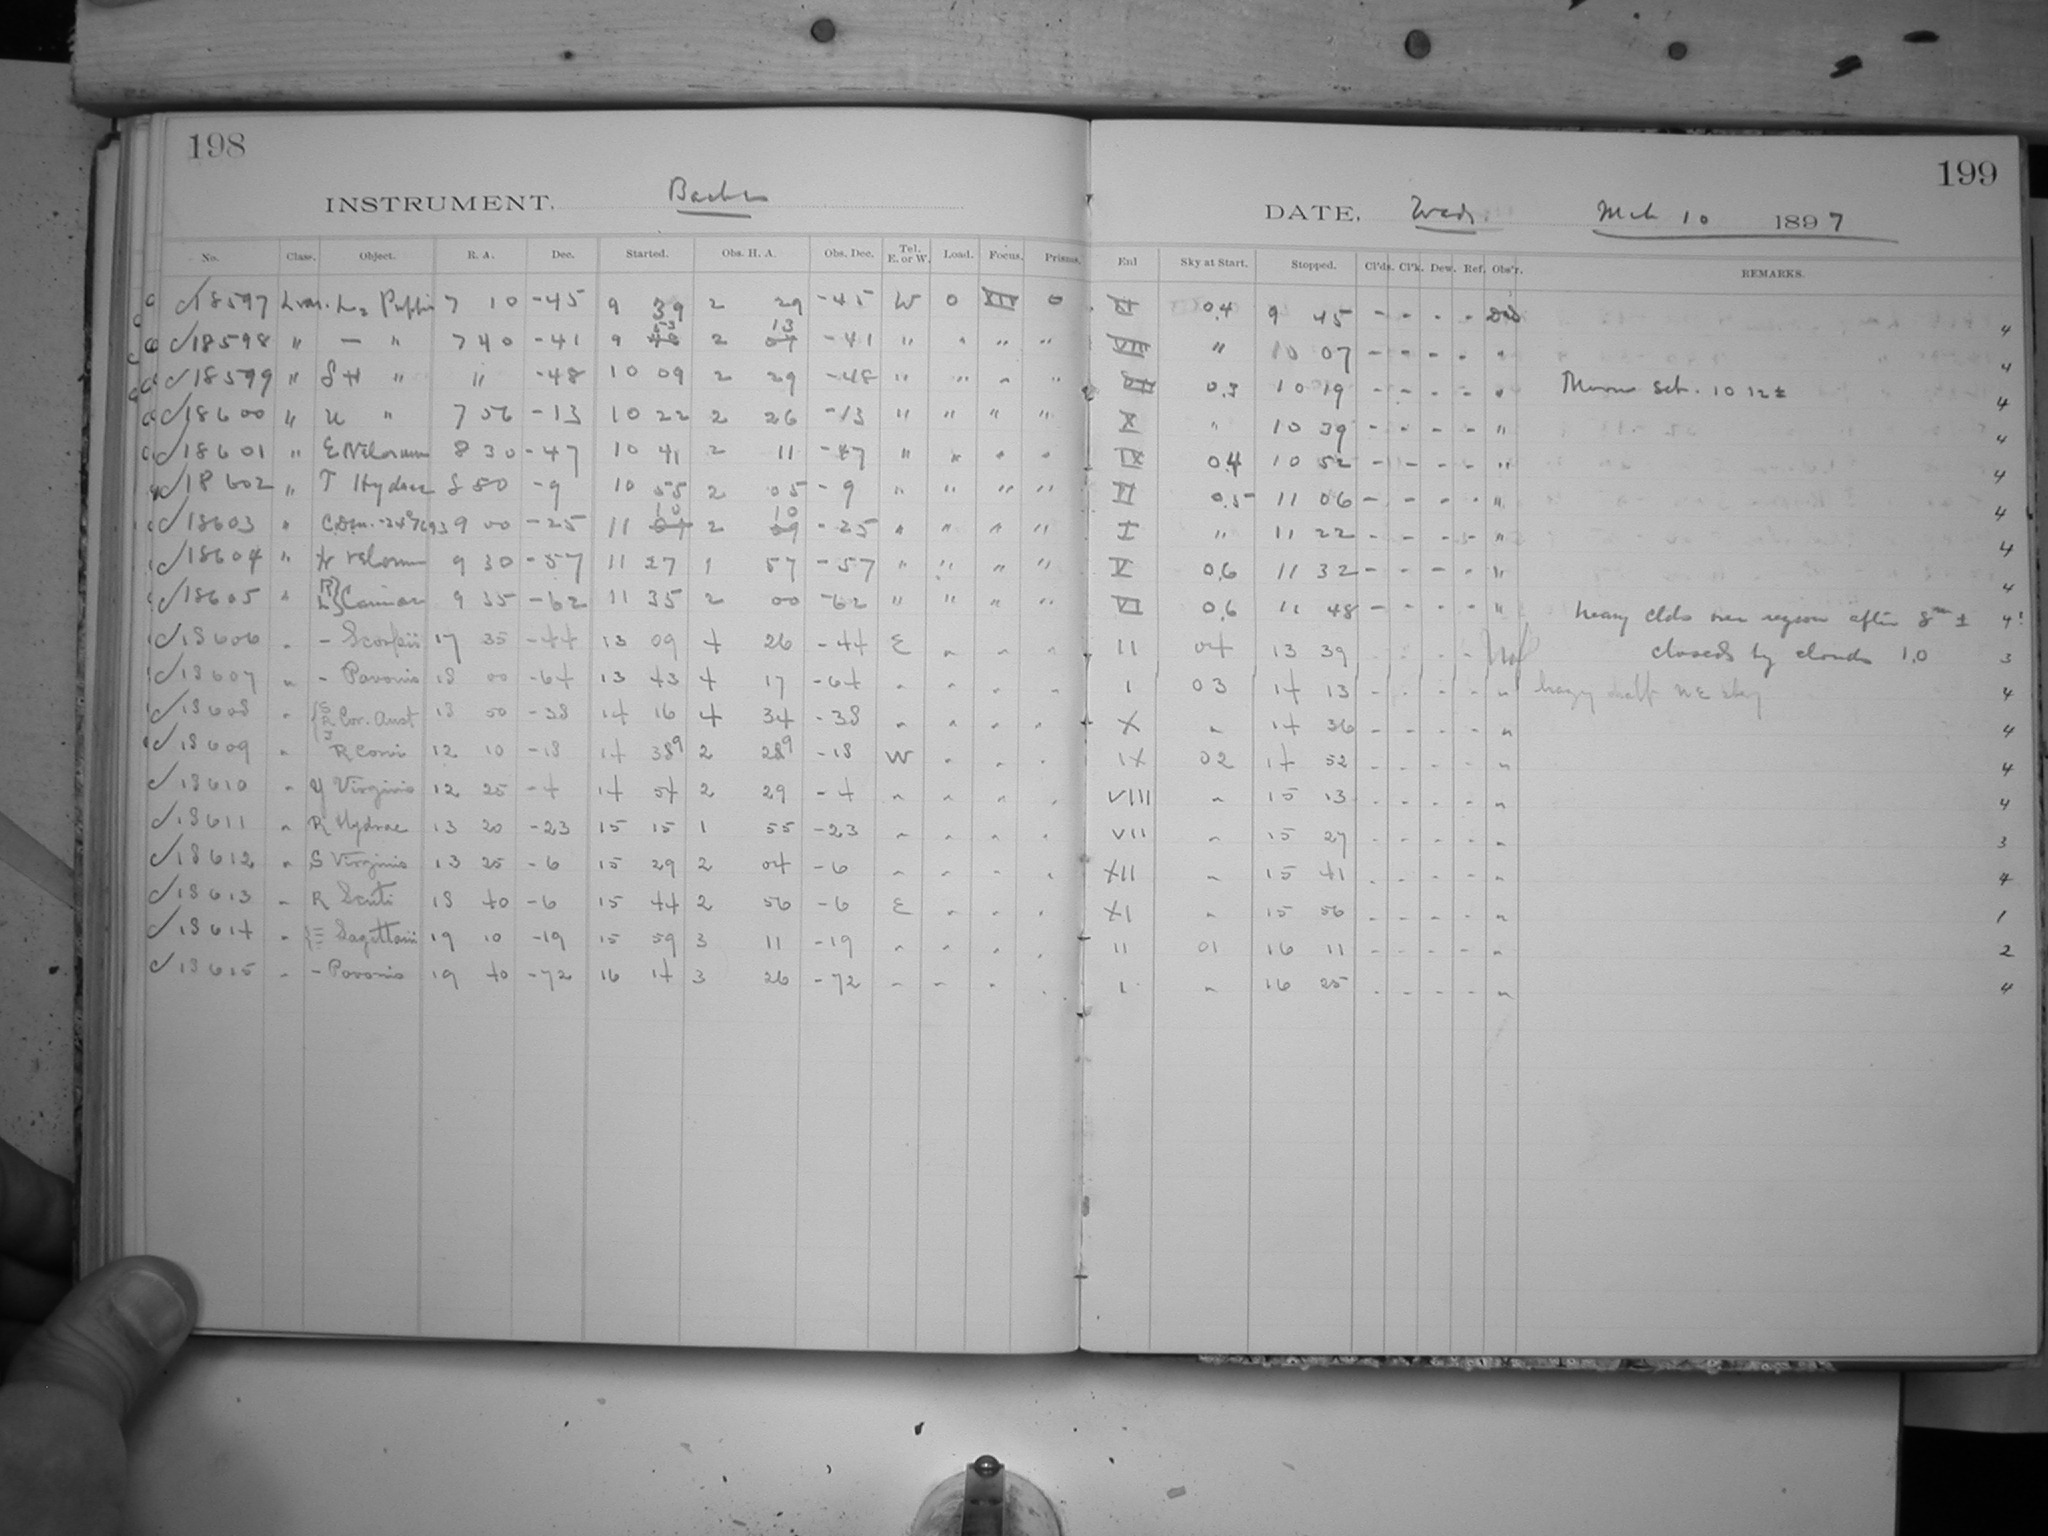 198
INSTRUMENT. Bache
No. Class. Object. R. A. Dec. Started. Obs. H. A. Obs. Dec. Tel. E. or W. Load. Focus. Prisms.
18597 L var. L₂ Puppis 7 10 -45 9 39 2 29 -45 W 0 XII 0
18598 " — " 7 40 -41 9 53 2 13 -41 " " " "
18599 " " " -48 10 09 2 29 -48 " " " "
18600 " U " 7 56 -13 10 22 2 26 -13 " " " "
18601 " Velorum 8 30 -47 10 41 2 11 -47 " " " "
18602 " T Hydrae 8 50 -9 10 55 2 05 -9 " " " "
18603 " 9 00 -25 11 10 2 10 -25 " " " "
18604 " Velorum 9 30 -57 11 27 1 57 -57 " " " "
18605 " Carinae 9 35 -62 11 35 2 00 -62 " " " "
18606 " - Scorpii 17 35 -44 13 09 4 26 -44 E " " "
18607 " - Pavonis 18 00 -64 13 43 4 17 -64 " " " "
18608 " Cor. Aust 18 50 -38 14 16 4 34 -38 " " " "
18609 " R Corvi 12 10 -18 14 39 2 29 -18 W " " "
18610 " Y Virginis 12 25 -4 14 54 2 29 -4 " " " "
18611 " R Hydrae 13 20 -23 15 15 1 55 -23 " " " "
18612 " S Virginis 13 25 -6 15 29 2 04 -6 " " " "
18613 " R Scuti 18 40 -6 15 44 2 56 -6 E " " "
18614 " Sagittarii 19 10 -19 15 59 3 11 -19 " " " "
18615 " - Pavonis 19 40 -72 16 14 3 26 -72 " " " "
199
DATE, Wed. Mch 10 1897
Enl Sky at Start. Stopped. Cl'ds. Cl'k. Dew. Ref. Obs'r. REMARKS.
0.4 9 45 - - - - 4
VIII " 10 07 - - - - " 4
0.3 10 19 - - - - " Moon set. 10 12 ± 4
X " 10 39 - - - - " 4
IX 0.4 10 52 - - - - " 4
VI 0.5 11 06 - - - - " 4
I " 11 22 - - - - " 4
V 0.6 11 32 - - - - " 4
VI 0.6 11 48 - - - - " heavy clds over region after 8ᵐ ± 4!
II 04 13 39 - - - - closed by clouds 1.0 3
I 03 14 13 - - - - " 4
X " 14 36 - - - - " 4
IX 02 14 52 - - - - " 4
VIII " 15 13 - - - - " 4
VII " 15 27 - - - - " 3
XII " 15 41 - - - - " 4
XI " 15 56 - - - - " 1
II 01 16 11 - - - - " 2
I " 16 25 - - - - " 4